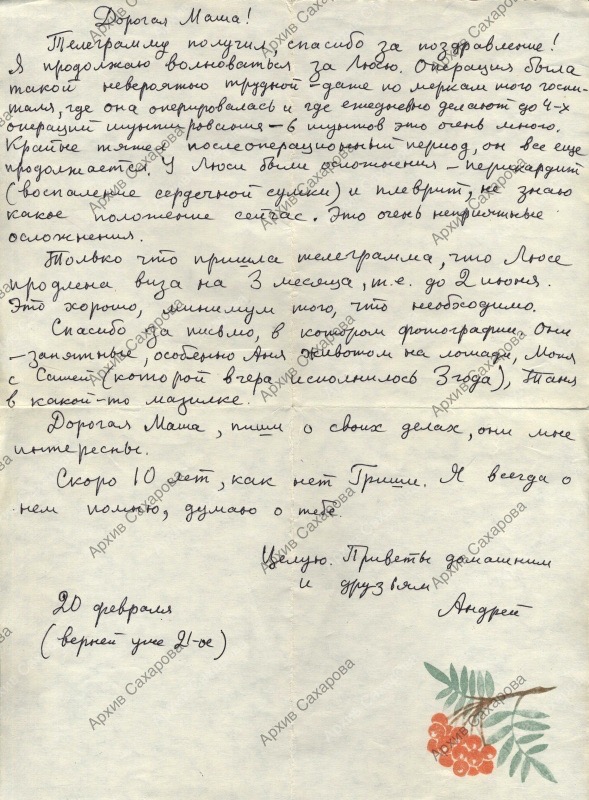 Дорогая Маша!
Телеграмму получил, спасибо за поздравление!
Я продолжаю волноваться за Люсю. Операция была
такой невероятно трудной – даже по меркам того госпи-
таля, где она оперировалась и где ежедневно делают до 4-х
операций шунтирования – 6 шунтов это очень много.
Крайне тяжел послеоперационный период, он все еще
продолжается. У Люси были осложнения – перикардит
(воспаление сердечной сумки) и плеврит, не знаю
какое положение сейчас. Это очень неприятные
осложнения.
Только что пришла телеграмма, что Люсе
продлена виза на 3 месяца, т.е. до 2 июня.
Это хорошо, минимум того, что необходимо.
Спасибо за письмо, в котором фотографии. Они
– занятные, особенно Аня животом на лошади, Мотя
с Сашей (которой вчера исполнилось 3 года), Таня
в какой-то мазилке.
Дорогая Маша, пиши о своих делах, они мне
интересны.
Скоро 10 лет, как нет Гриши. Я всегда о
нем помню, думаю о тебе.
Целую. Приветы домашним
и друзьям
Андрей
20 февраля
(верней уже 21-ое)
Архив Сахарова